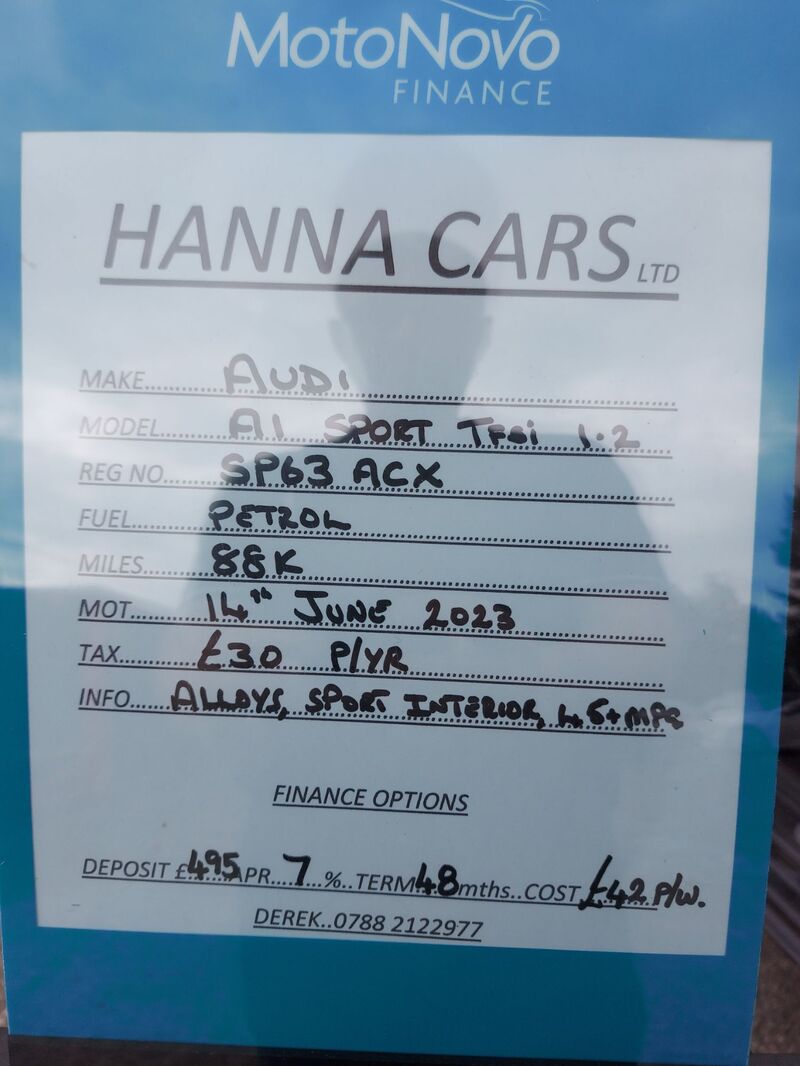 MOTONOVO
FINANCE
HANNA CARS LTD
MAKE......... AUDI
MODEL...... A1 SPORT TFSi 1.2
REG NO..... SP63 ACX
FUEL......... PETROL
MILES........ 88K
MOT......... 14TH JUNE 2023
TAX......... £30 P/YR
INFO...... ALLOYS, SPORT INTERIOR, 45+MPG
FINANCE OPTIONS
DEPOSIT £495 APR...7...%..TERM 48 mths..COST £42 P/W.
DEREK..0788 2122977